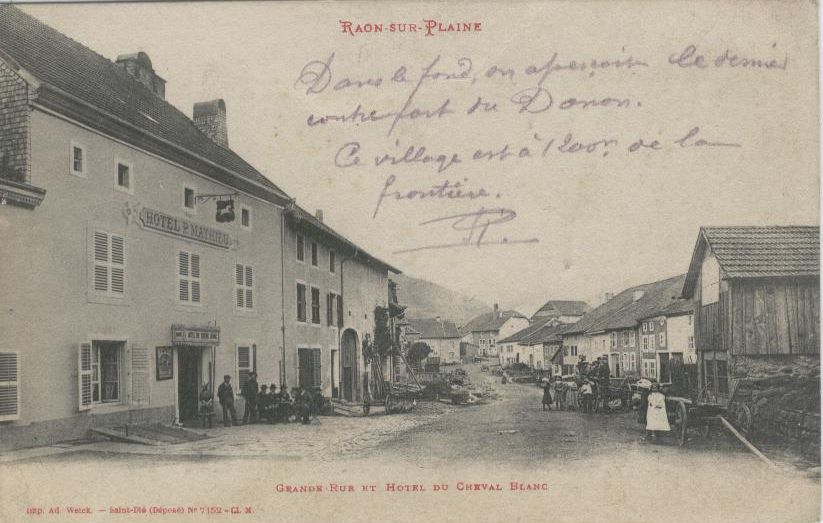 RAON-SUR-PLAINE
Dans le fond, on aperçoit le dernier
contre fort du Donon.
Ce village est à 1200m de la
frontière.
HOTEL P. MATHIEU
HOTEL DU CHEVAL BLANC
GRANDE RUE ET HOTEL DU CHEVAL BLANC
Imp. Ad. Weick. — Saint-Dié (Déposé) No 7152 - Cl. M.